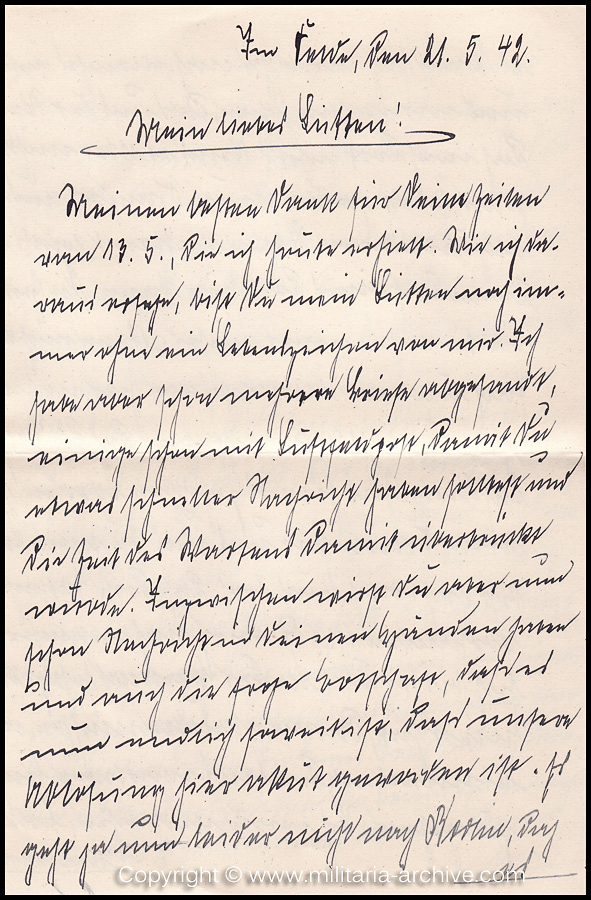 Im Felde, den 21. 5. 42.
Mein liebes Lütten!
Meinen besten Dank für Deine Zeilen
vom 13. 5., die ich heute erhielt. Wie ich da-
raus ersehe, bist Du mein Lütten noch im-
mer ohne ein Lebenszeichen von mir. Ich
habe aber schon mehrere Briefe abgesandt,
einige schon mit Luftfeldpost, damit Du
etwas schneller Nachricht haben solltest und
die Zeit des Wartens damit überbrückt
würde. Inzwischen wirst Du aber nun
schon Nachricht in Deinen Händen haben
und auch die frohe Botschaft, daß es
nun endlich soweit ist, daß unsere
Ablösung hier akut geworden ist. Es
geht ja nun leider nicht nach Berlin, doch
Copyright © www.militaria-archive.com